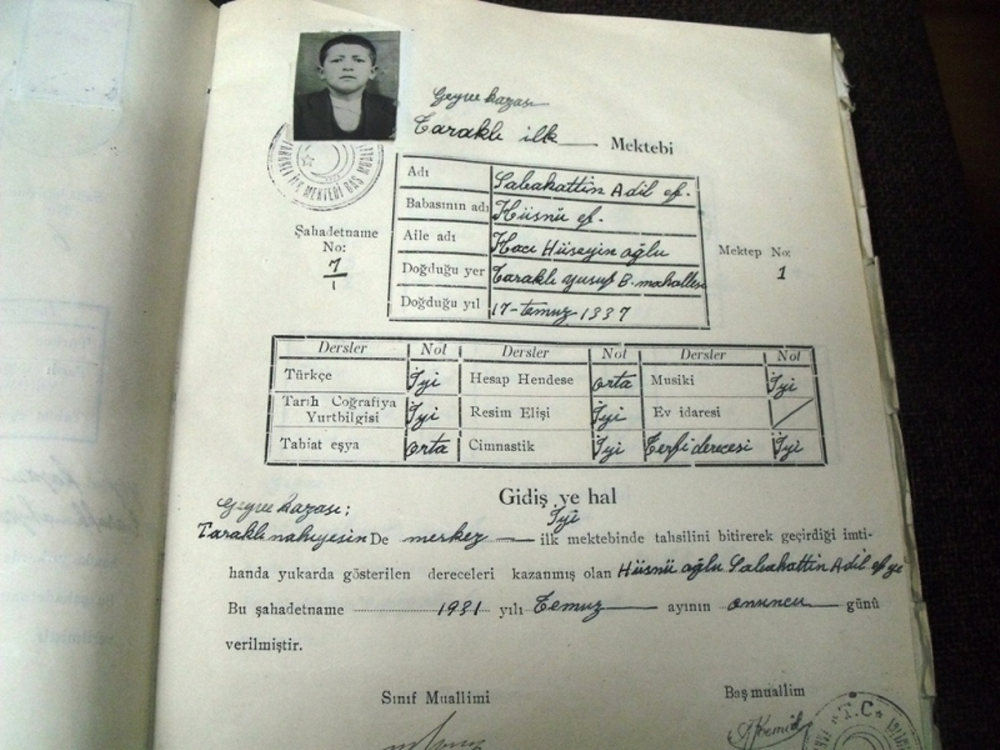 Geyve kazası
Taraklı ilk Mektebi
Adı Sabahattin Adil ef.
Babasının adı Hüsnü ef.
Aile adı Hacı Hüseyin oğlu
Doğduğu yer Taraklı yusuf B. mahallesi
Doğduğu yıl 17-temuz 1337
Şahadetname
No:
7
1
Mektep No:
1
Dersler Not Dersler Not Dersler Not
Türkçe İyi Hesap Hendese orta Musiki İyi
Tarih Coğrafiya
Yurtbilgisi İyi Resim Elişi İyi Ev idaresi
Tabiat eşya orta Cimnastik İyi Terfi derecesi İyi
Gidiş ve hal
İyi
Geyve kazası;
Taraklı nahiyesin De merkez ilk mektebinde tahsilini bitirerek geçirdiği imti-
handa yukarda gösterilen dereceleri kazanmış olan Hüsnü oğlu Sabahattin Adil ef ye
Bu şahadetname 1931 yılı Temuz ayının onuncu günü
verilmiştir.
Sınıf Muallimi Baş muallim
T.C